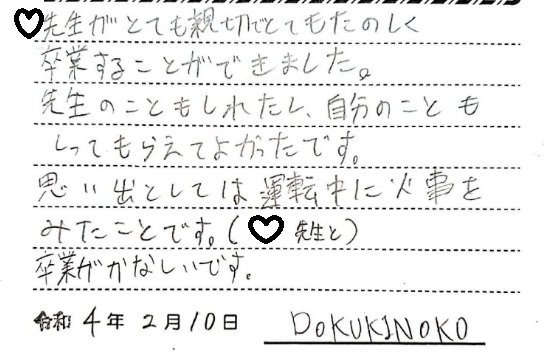 ♡先生がとても親切でとてもたのしく
卒業することができました。
先生のこともしれたし、自分のことも
しってもらえてよかったです。
思い出としては運転中に火事を
みたことです。(♡先生と)
卒業がかなしいです。
令和4年2月10日 DOKUKINOKO